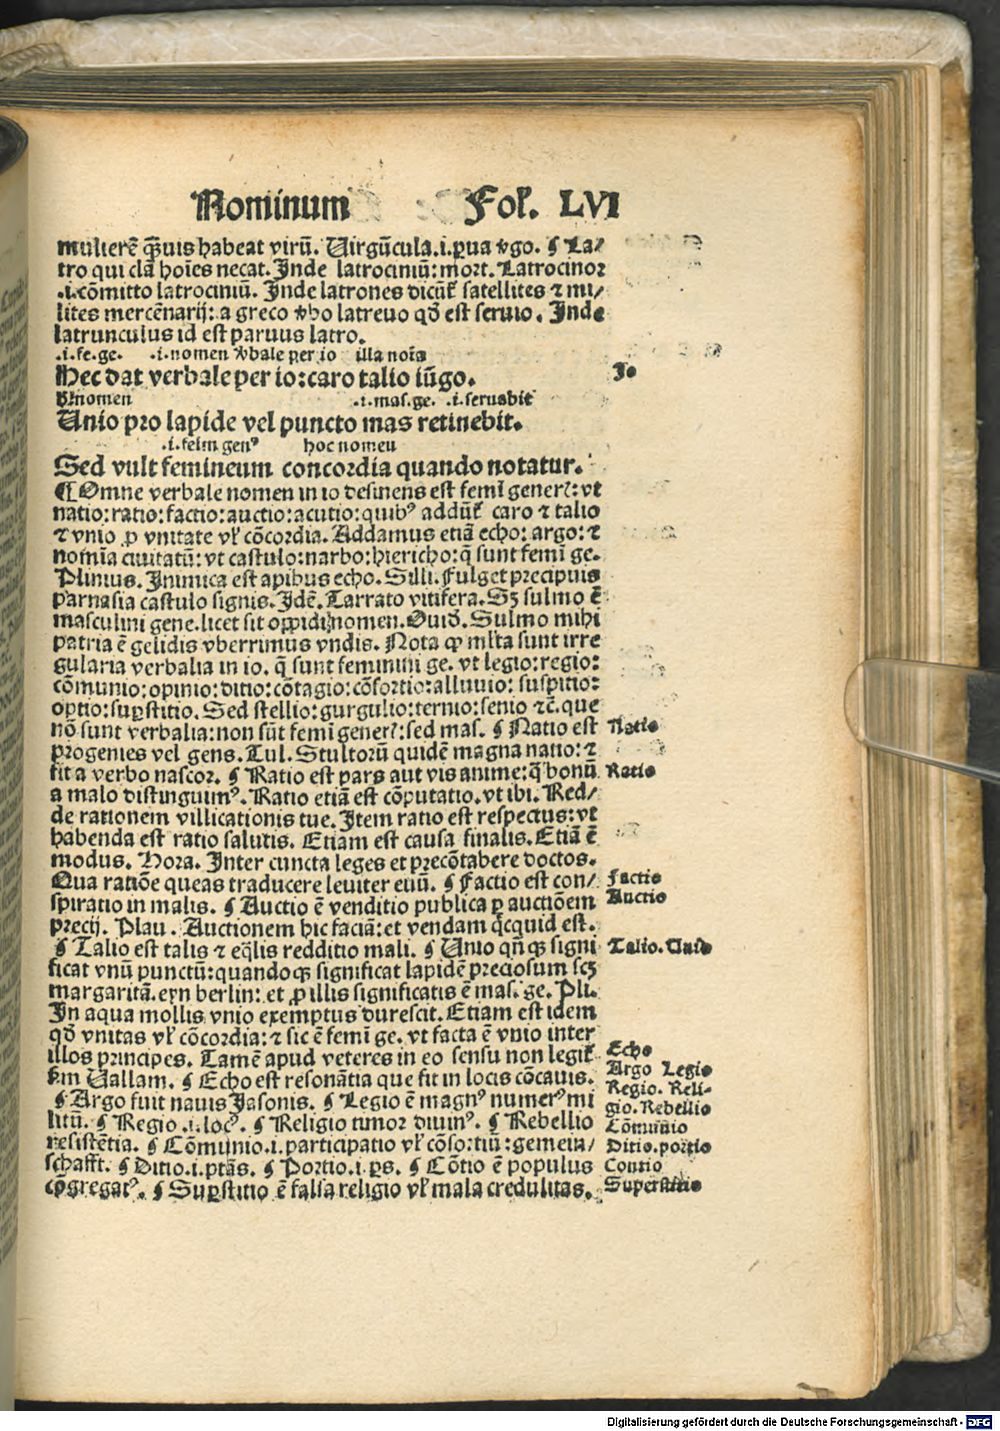 Nominum Fol. LVI
mulierē q̄uis habeat virū. Uirgūcula.i.ꝑua v̓go. ¶ La⸗
tro qui clā hoīes necat. Inde latrociniū: mort. Latrocinor
.i.cōmitto latrociniū. Inde latrones dicūt satellites ⁊ mi⸗
lites mercēnarij: a greco v̓bo latreuo qd̄ est seruio. Inde
latrunculus id est paruus latro.
.i.fe.ge. .i.nomen v̓bale per io illa noīa
Hec dat verbale per io: caro talio iūgo. Io
nomen .i.mas.ge. .i.seruabit
Unio pro lapide vel puncto mas retinebit.
.i.femi genꝰ hoc nomen
Sed vult femineum concordia quando notatur.
¶ Omne verbale nomen in io desinens est femī generꝭ: vt
natio: ratio: factio: auctio: acutio: quibꝰ addūt caro ⁊ talio
⁊ vnio ꝓ vnitate vl̓ cōcordia. Addamus etiā echo: argo: ⁊
nomīa ciuitatū: vt castulo: narbo: hiericho: q̄ sunt femī ge.
Plinius. Inimica est apibus echo. Silli. Fulget precipuis
parnasia castulo signis. Idē. Tarrato vitifera. Sꝫ sulmo ē
masculini gene. licet sit oppidi nomen. Ouid. Sulmo mihi
patria ē gelidis vberrimus vndis. Nota ꝙ ml̓ta sunt irre
gularia verbalia in io. q̄ sunt feminini ge. vt legio: regio:
cōmunio: opinio: ditio: cōtagio: cōsortio: alluuio: suspitio:
optio: suꝑstitio. Sed stellio: gurgulio: ternio: senio ⁊c̄. que
nō sunt verbalia: non sūt femī generꝭ: sed mas. ¶ Natio est Natio
progenies vel gens. Tul. Stultorū quidē magna natio: ⁊
fit a verbo nascor. ¶ Ratio est pars aut vis anime: q̄ bonū Ratio
a malo distinguimꝰ. Ratio etiā est cōputatio. vt ibi. Red⸗
de rationem villicationis tue. Item ratio est respectus: vt
habenda est ratio salutis. Etiam est causa finalis. Etiā ē
modus. Hora. Inter cuncta leges et precōtabere doctos.
Qua ratiōe queas traducere leuiter euū. ¶ Factio est con⸗ Factio
spiratio in malis. ¶ Auctio ē venditio publica ꝑ auctiōem Auctio
precij. Plau. Auctionem hic faciā: et vendam qcquid est.
¶ Talio est talis ⁊ eq̄lis redditio mali. ¶ Unio qn̄qꝫ signi Talio. Unio
ficat vnū punctū: quandoqꝫ significat lapidē preciosum scꝫ
margaritā. eyn berlin: et ꝓ illis significatis ē mas. ge. Pli.
In aqua mollis vnio exemptus durescit. Etiam est idem
qd̄ vnitas vl̓ cōcordia: ⁊ sic ē femī ge. vt facta ē vnio inter
illos principes. Tamē apud veteres in eo sensu non legit̄ Echo
fm Uallam. ¶ Echo est resonātia que fit in locis cōcauis. Argo Legio
¶ Argo fuit nauis Jasonis. ¶ Legio ē magnꝰ numerꝰ mi Regio. Reli-
litū. ¶ Regio .i. locꝰ. ¶ Religio timor diuinꝰ. ¶ Rebellio gio. Rebellio
resistētia. ¶ Cōmunio.i.participatio vl̓ cōsortiū: gemein⸗ Cōmunio
schafft. ¶ Ditio.i.ptās. ¶ Portio.i.ps. ¶ Cōtio ē populus Ditio. portio
cōgregatꝰ. ¶ Suꝑstitio ē falsa religio vl̓ mala credulitas. Contio
Superstitio
Digitalisierung gefördert durch die Deutsche Forschungsgemeinschaft - DFG